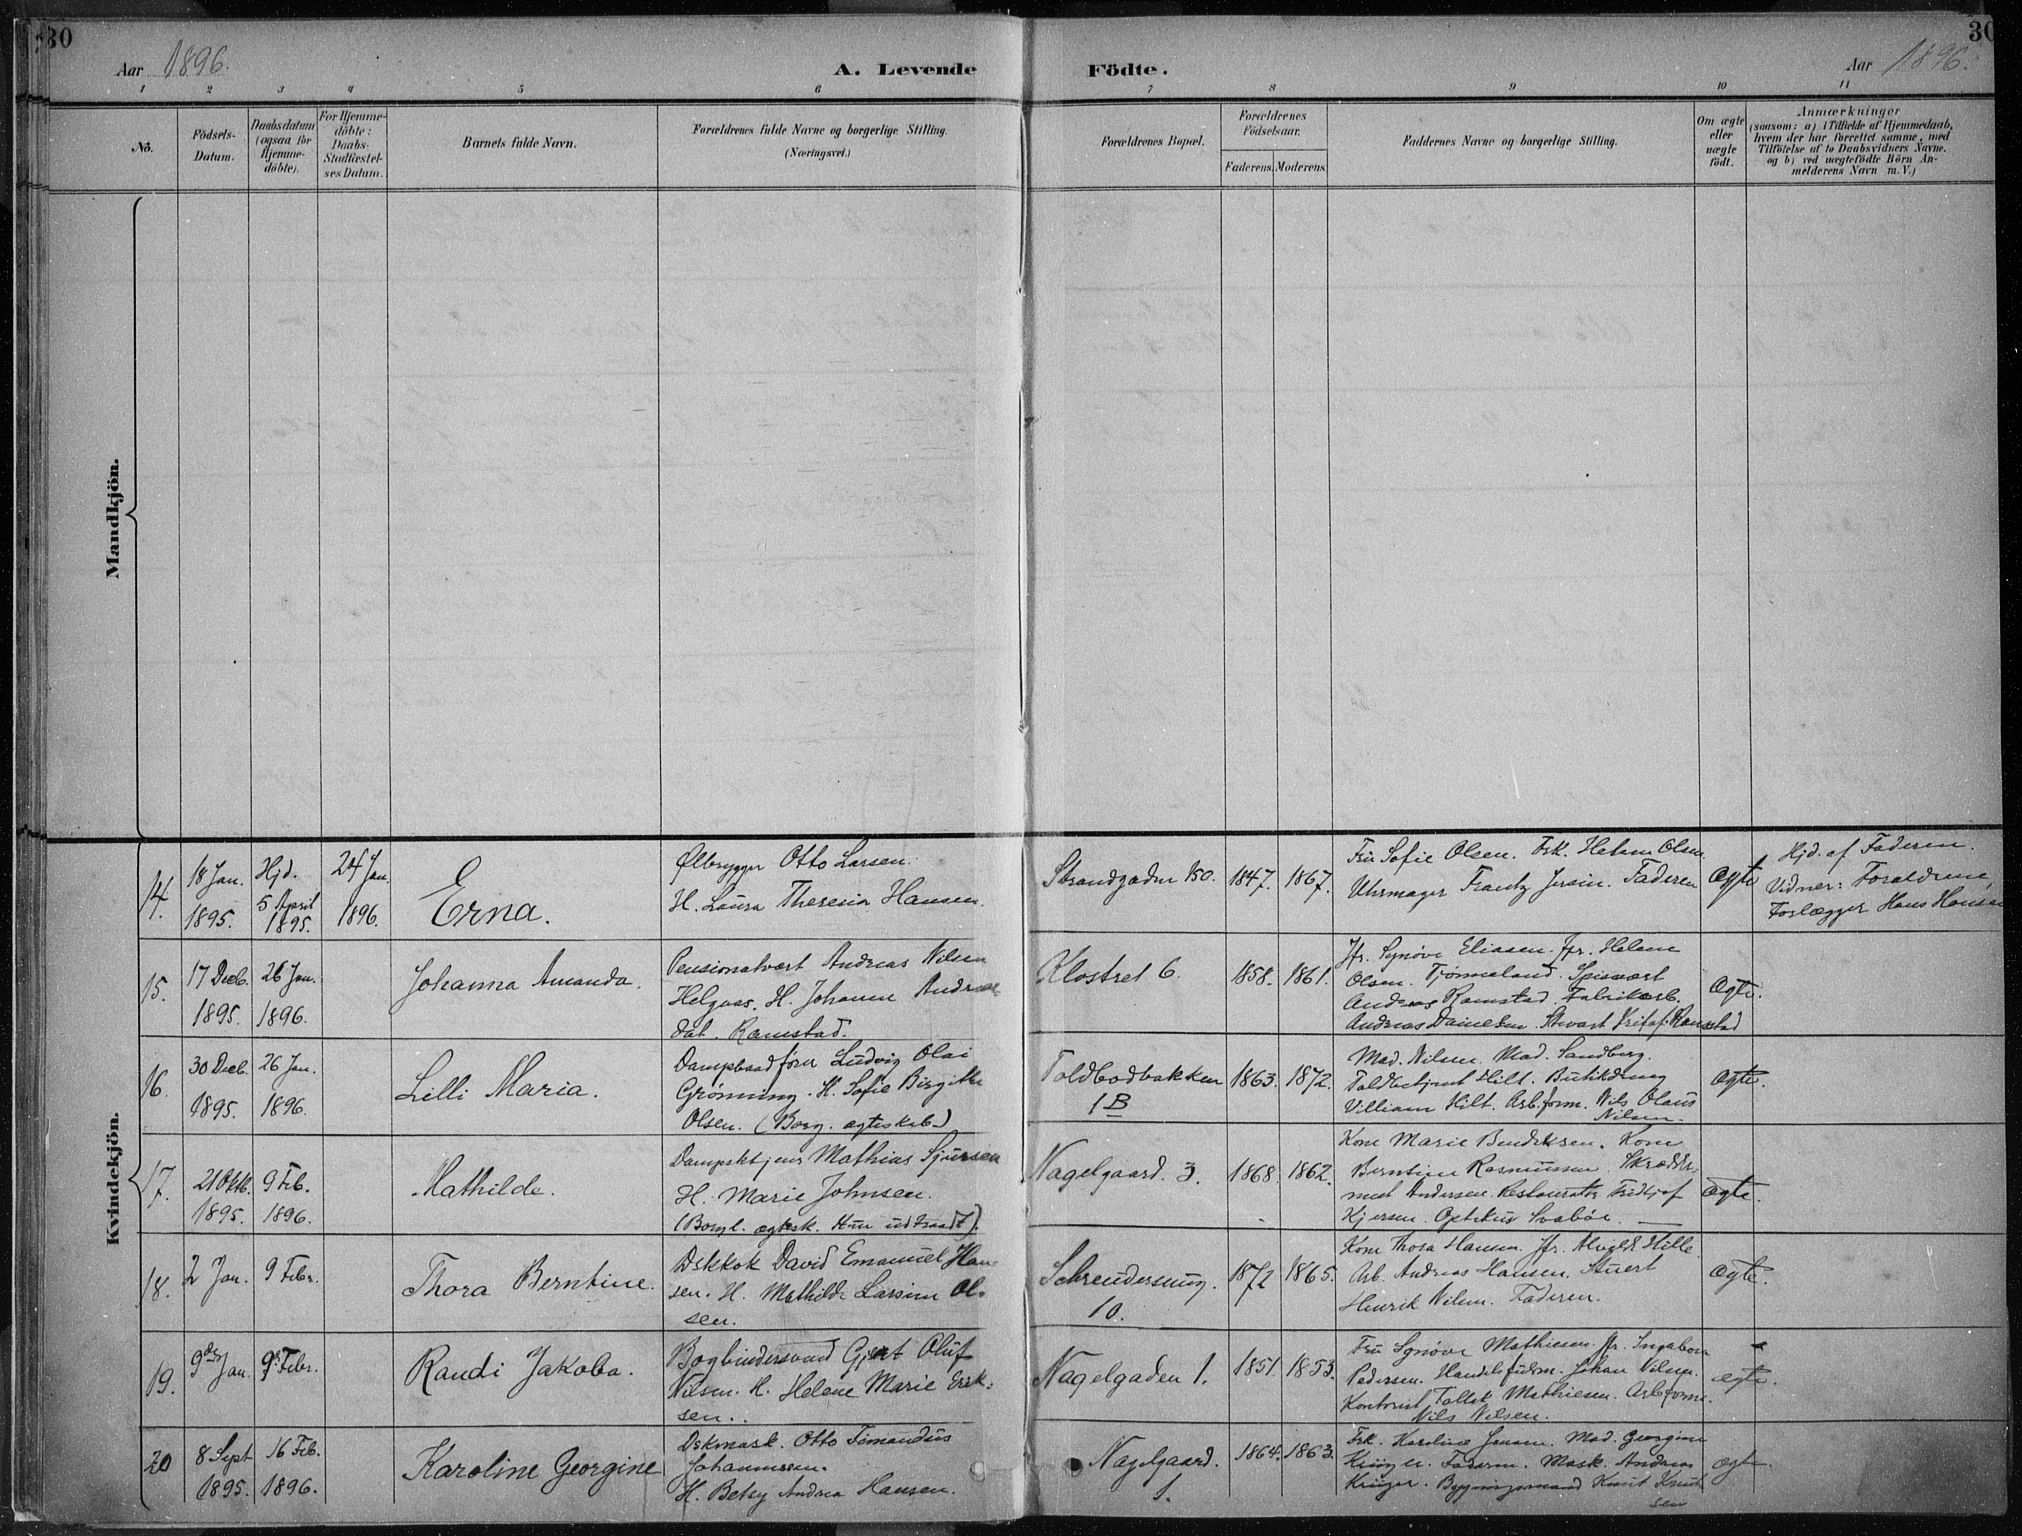 30
30
Aar 1896.
A. Levende Födte.
Aar 1896.
1 2 3 4 5 6 7 8 9 10 11
No.
Födsels-Datum.
Daabsdatum (ogsaa for Hjemme-döbte).
For Hjemme-döbte: Daabs-Stadfæstel-ses Datum.
Barnets fulde Navn.
Forældrenes fulde Navne og borgerlige Stilling.
(Næringsvei.)
Forældrenes Bopæl.
Forældrenes Födselsaar.
Faderens. Moderens.
Faddernes Navne og borgerlige Stilling.
Om ægte eller uægte födt.
Anmærkninger
(saasom: a) i Tilfælde af Hjemmedaab,
hvem der har forrettet samme, med
Tilföielse af to Daabsvidners Navne.
og b) ved uægtefödte Börn An-
melderens Navn m. V.)
Mandkjön.
Kvindekjön.
14.
18 Jan. 1895.
Hjd. 5 April 1895.
24 Jan. 1896.
Erna.
Ølbrygger Otto Larsen.
H. Laura Theresia Hansen.
Strandgaden 150.
1847. 1867.
Fru Sofie Olsen. Frk. Helene Olsen
Uhrmager Frantz Jersin. Faderen
Ægte
Hjd. af Faderen.
Vidner: Forældrene,
Forlægger Hans Hansen
15.
17 Decb. 1895.
26 Jan. 1896.
Johanna Amanda.
Pensionatvært Andreas Nilsen
Helgaas. H. Johanne Andreas
dat. Ramstad.
Klostret 6.
1858. 1861.
Jfr. Synøve Eliasen. Jfr. Helene
Olsen. Tjønneland. Spisevært
Andreas Ramstad. Fabrikarb.
Andreas Danielsen. Stuart Kristof. Ramstad
Ægte.
16.
30 Decb. 1895.
26 Jan. 1896.
Lilli Maria.
Dampbaadfører Ludvig Olai
Grønning. H. Sofie Birgithe
Olsen. (Borg. ægteskab.)
Toldbodbakken
1B
1863. 1872.
Mad. Nilsen. Mad. Sandberg.
Toldbetjent Hilt. Butikdreng
Villiam Hilt. Arb.form. Nils Olaus
Nilsen.
Ægte.
17.
21 Oktb. 1895.
9 Feb. 1896.
Mathilde.
Dampsktjener Mathias Sjursen
H. Marie Johnsen.
(Borgl. ægtesk. Hun udtraadt).
Nagelgaard. 3.
1868. 1862.
Kone Marie Bendiksen. Kone
Berntine Rasmussen. Skrædder-
mest Andersen. Restauratør Fridtjof
Kjersen. Optikus Svabøe.
Ægte.
18.
2 Jan.
9 Febr.
Thora Berntine.
Dskkok David Emanuel Han-
sen. H. Mathilde Larsine Ol-
sen.
Schreudersmug.
10.
1872 1865.
Kone Thora Hansen. Jfr. Alvilde Hille
Arb. Andreas Hansen. Stuert
Henrik Nilsen. Faderen.
Ægte.
19.
9de Jan.
9. Febr.
Randi Jakoba.
Bogbindersvend Gjert Oluf
Nilsen. H. Helene Marie Erik-
sen.
Nagelgaden 1.
1851. 1853.
Fru Synøve Mathiesen. Jfr. Ingeborg
Pedersen. Handelsfuldm. Johan Nilsen.
Kontorist Tollak Mathiesen. Arbform.
Nils Nilsen.
Ægte.
20
8 Sept 1895.
16 Feb. 1896.
Karoline Georgine
Dskmask. Otto Fernandus
Johannessen.
H. Betsy Andrea Hansen.
Nagelgaard.
1.
1864. 1863.
Frk. Karoline Jensen. Mad. Georgine
Krüger. Faderen. Mask. Andreas
Krüger. Bygningsmand Knut Knut
sen
Ægte.